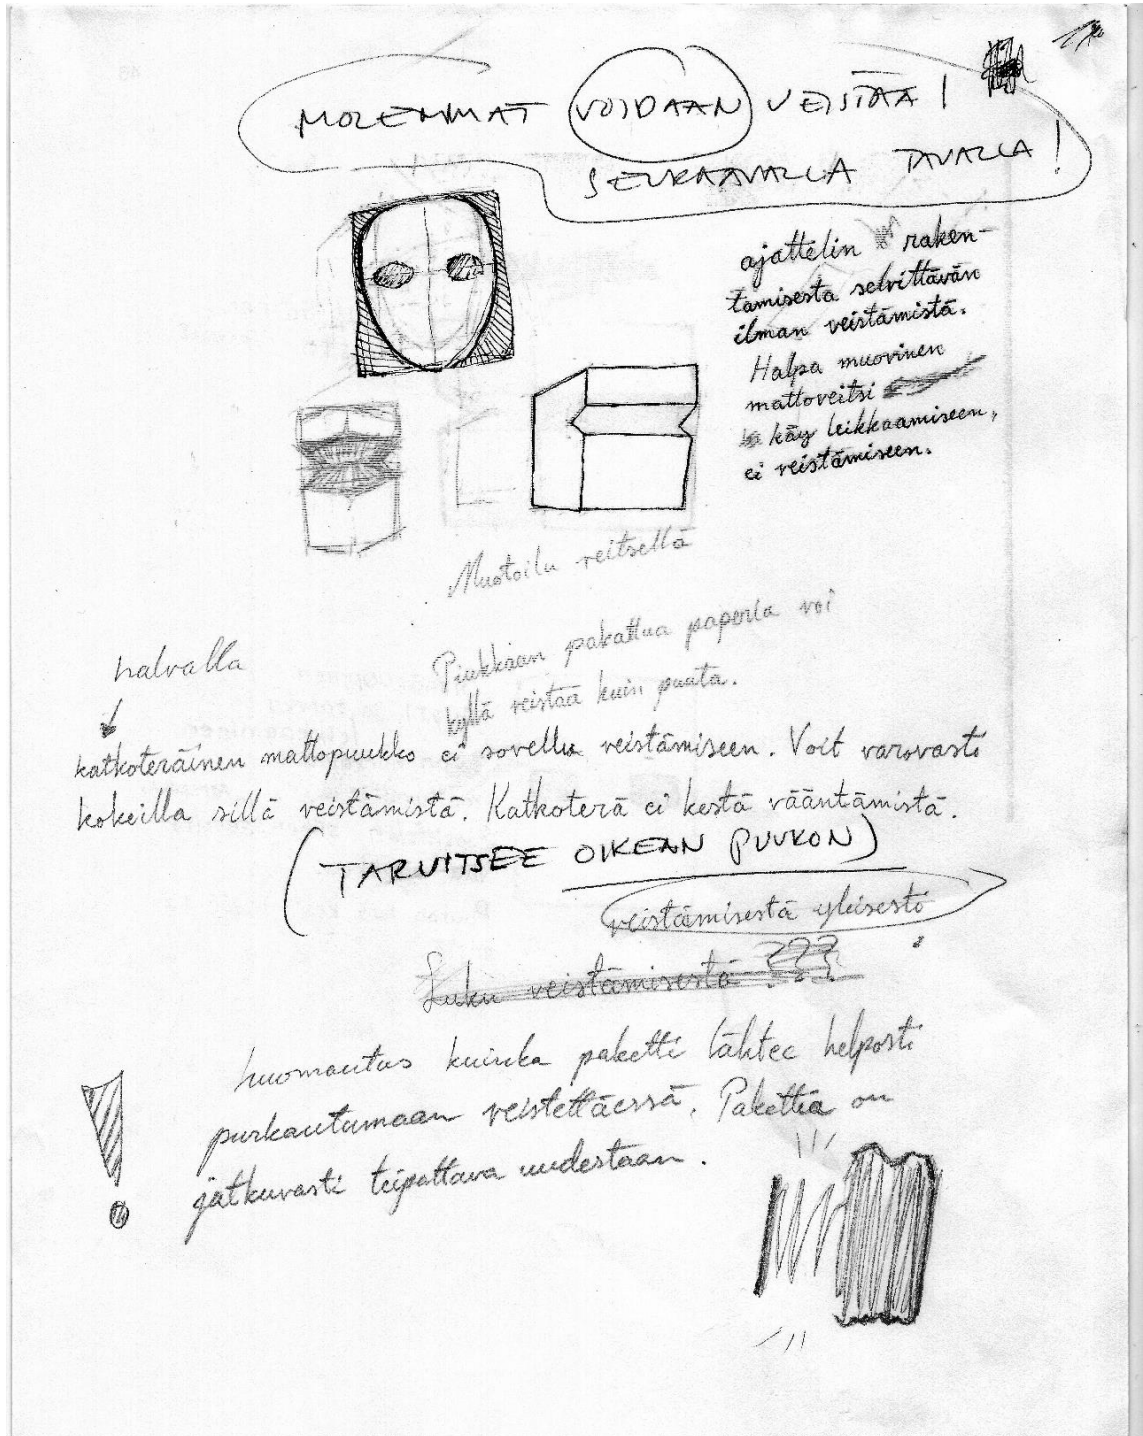 MOLEMMAT VOIDAAN VEISTÄÄ!
SEURAAVALLA TAVALLA!
ajattelin raken-
tamisesta selvittävän
ilman veistämistä.
Halpa muovinen
mattoveitsi
käy leikkaamiseen,
ei veistämiseen.
Muotoilu veitsellä
Piukkaan pakattua paperia voi
kyllä veistää kuin puuta.
halvalla
katkoteräinen mattopuukko ei sovellu veistämiseen. Voit varovasti
kokeilla sillä veistämistä. Katkoterä ei kestä vääntämistä.
(TARVITSEE OIKEAN PUUKON)
veistämisestä yleisesti
Luku veistämisestä ???
huomautus kuinka paketti lähtee helposti
purkautumaan veistettäessä. Pakettia on
jatkuvasti teipattava uudestaan.